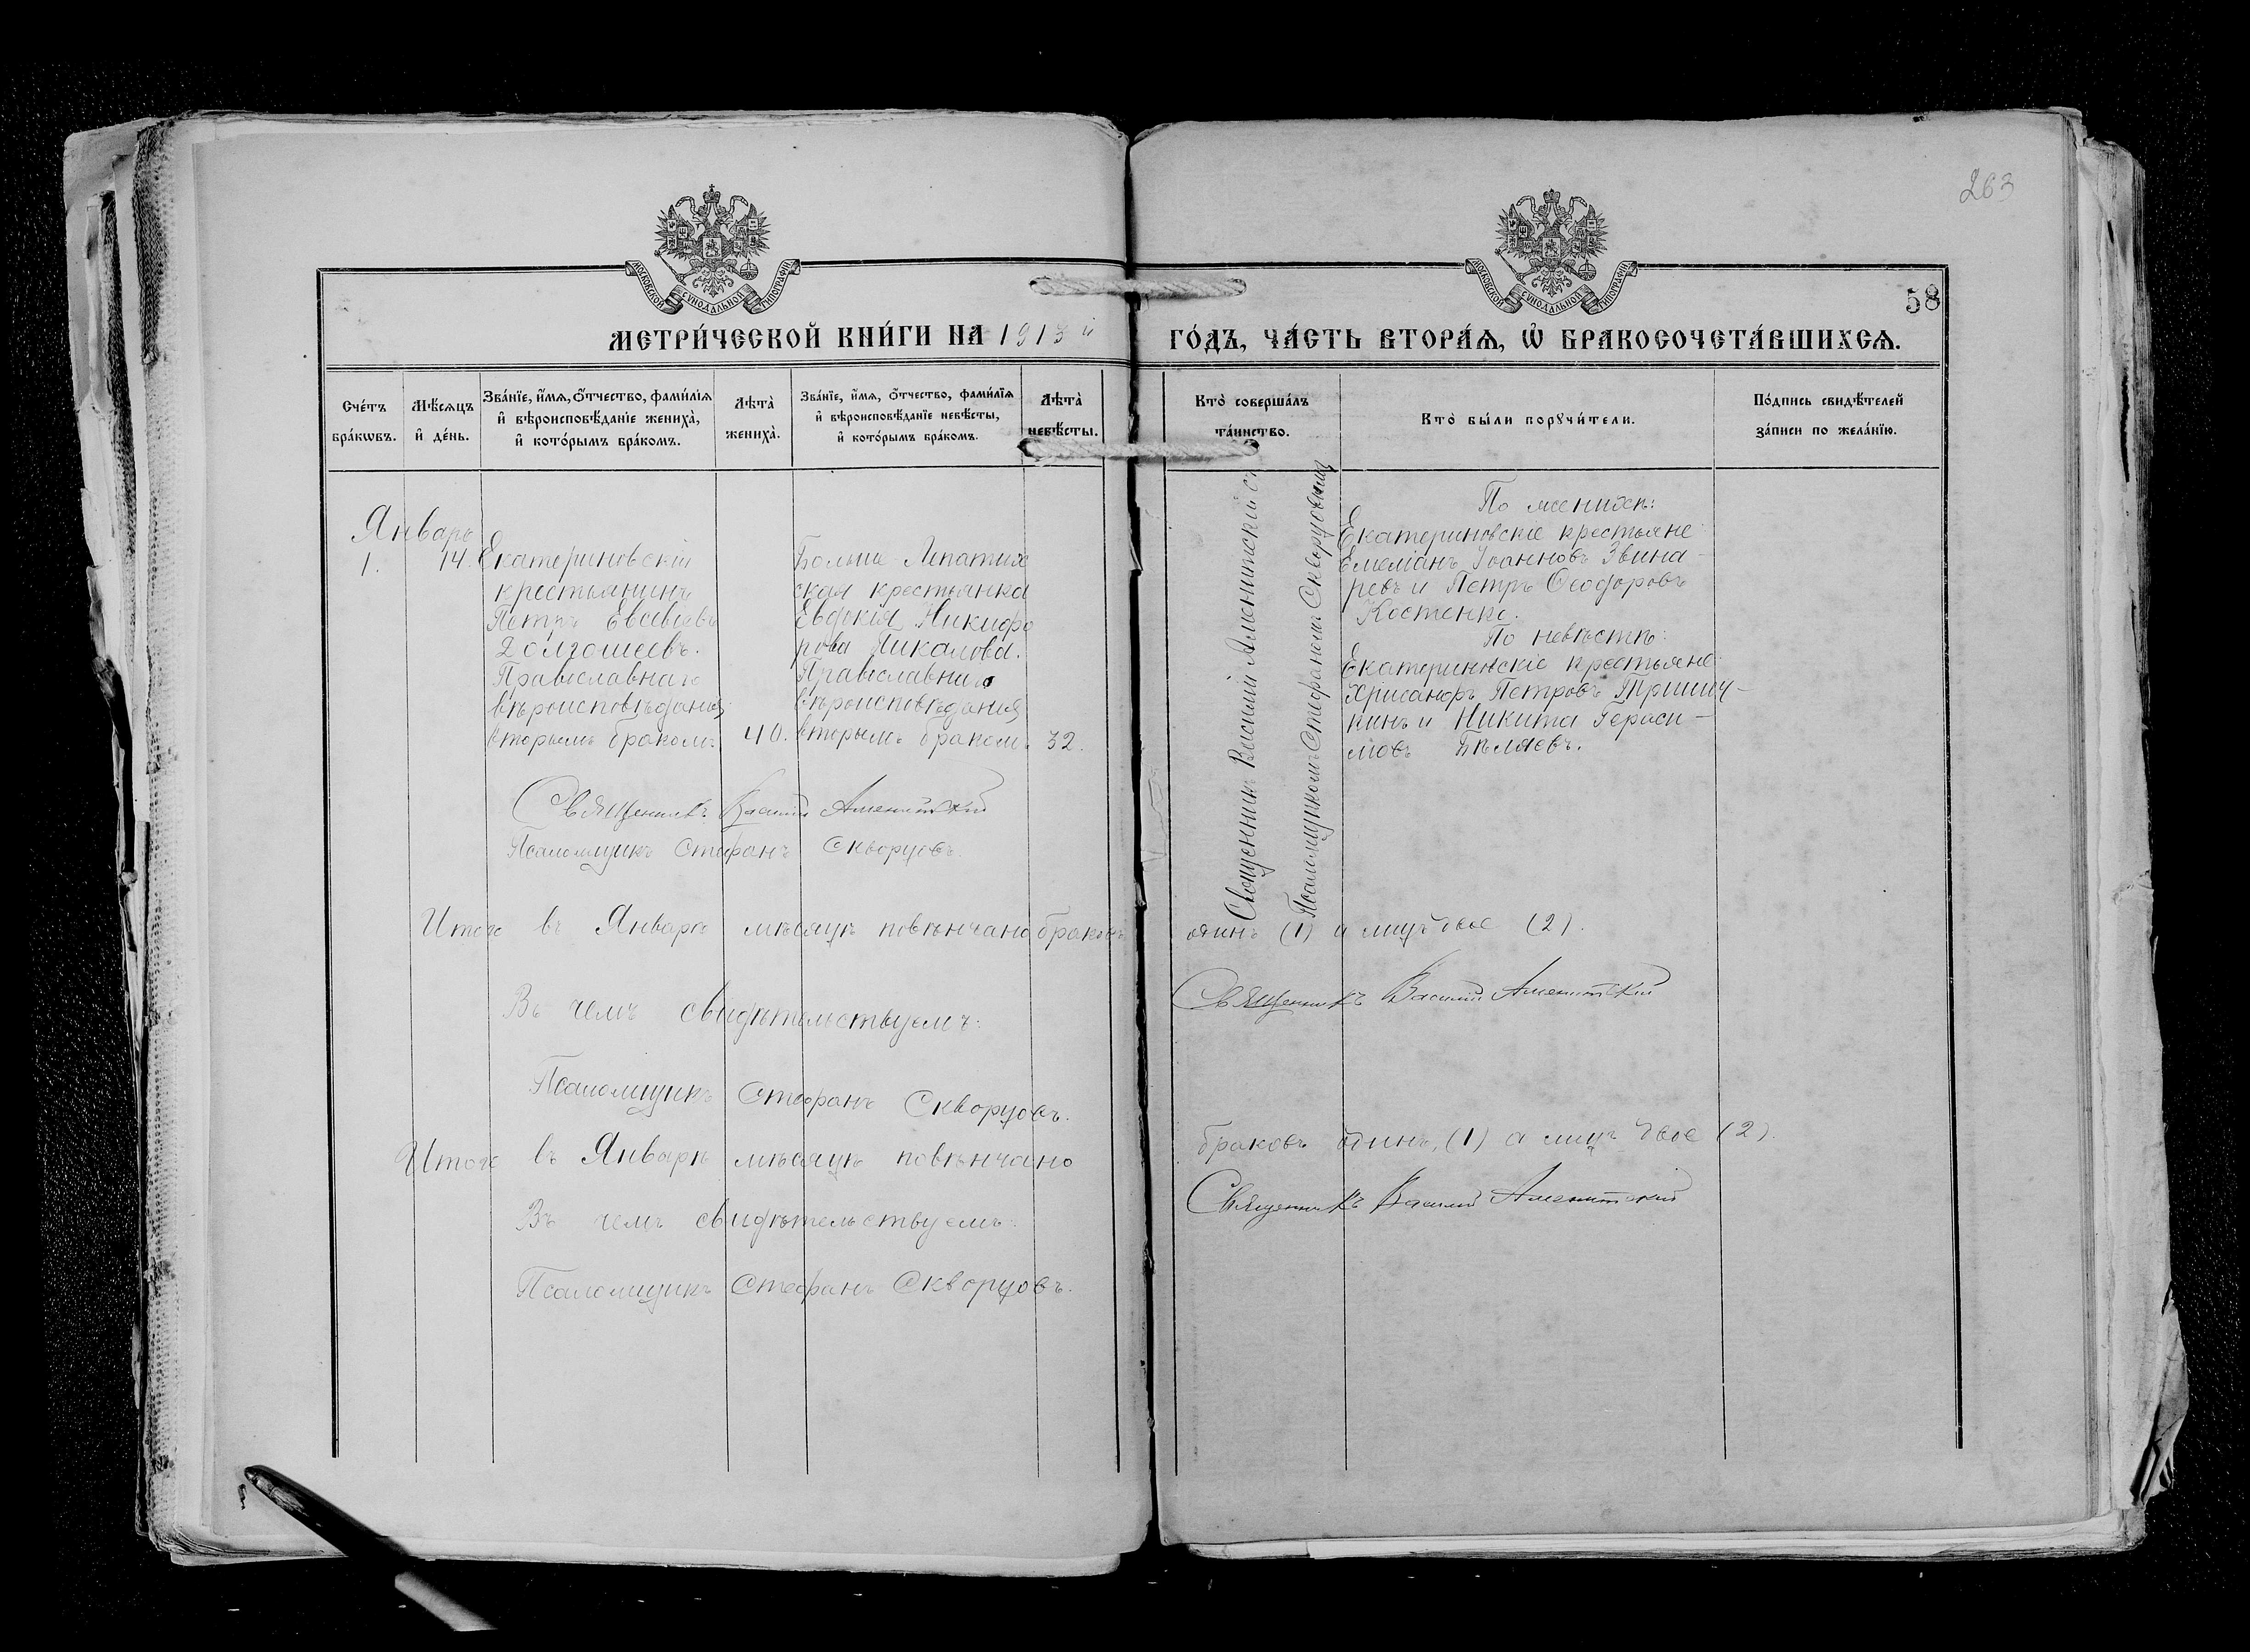 263
МОСКОВСКОЙ СУНОДАЛЬНОЙ ТИПОГРАФІИ
МОСКОВСКОЙ СУНОДАЛЬНОЙ ТИПОГРАФІИ
58
МЕТРИ́ЧЕСКОЙ КНИ́ГИ НА 1913 й ГО́ДЪ, ЧА́СТЬ ВТОРА́Ѧ, Ѡ҆ БРАКОСОЧЕТА́ВШИХСѦ.
Сче́тъ
бра́кѡвъ.
Мѣ́сяцъ
и҆ де́нь.
Зва́нїе, и҆́мѧ, ѻ҆́тчество, фами́лїѧ
и҆ вѣроисповѣ́данїе жениха̀,
и҆ кото́рымъ бра́комъ.
Лѣта̀
жениха̀.
Зва́нїе, и҆́мѧ, ѻ҆́тчество, фами́лїѧ
и҆ вѣроисповѣ́данїе невѣ́сты,
и҆ кото́рымъ бра́комъ.
Лѣта̀
невѣ́сты.
Кто̀ соверша́лъ
та́инство.
Кто̀ бы́ли порꙋчи́тели.
По́дпись свидѣ́телей
за́писи по жела́нїю.
Январь
1.
14.
Екатериновскій
крестьянинъ
Петръ Евсевіевъ
Долгошеевъ.
Православнаго
вѣроисповѣданія,
вторымъ бракомъ.
40.
Больше Лепатих
ская крестьянка
Евдокія Никифо
рова
Православнаго
вѣроисповѣданія
вторымъ бракомъ.
32.
Священникъ Василій Аменитскій
Псаломщикомъ Стефаномъ Скворцовымъ
По женихѣ:
Екатериновскіе крестьяне
Емеліанъ Іоанновъ Звина-
ревъ и Петръ Ѳеодоровъ
Костенко.
По невѣстѣ:
крестьяне:
Хрисанфъ Петровъ
кинъ и Никита Гераси-
мовъ Бѣляевъ.
Священникъ Василій Аменитскій
Псаломщикъ Стефанъ Скворцовъ.
Итого въ Январѣ мѣсяцѣ повѣнчано браковъ одинъ (1) а лицъ двое (2).
Въ чемъ свидѣтельствуемъ:
Священникъ Василій Аменитскій
Псаломщикъ Стефанъ Скворцовъ.
Итого въ Январѣ мѣсяцѣ повѣнчано браковъ одинъ, (1) а лицъ двое (2).
Въ чемъ свидѣтельствуемъ:
Священникъ Василій Аменитскій
Псаломщикъ Стефанъ Скворцовъ.